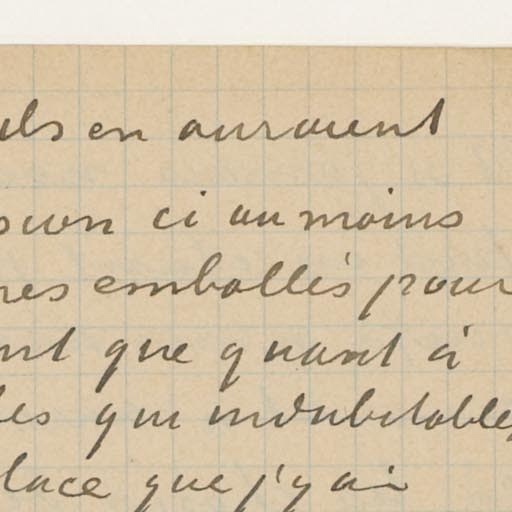 ils en auraient
sion ci au moins
res emballés pour
nt que quant à
les qui indubitable
place que j'y ai